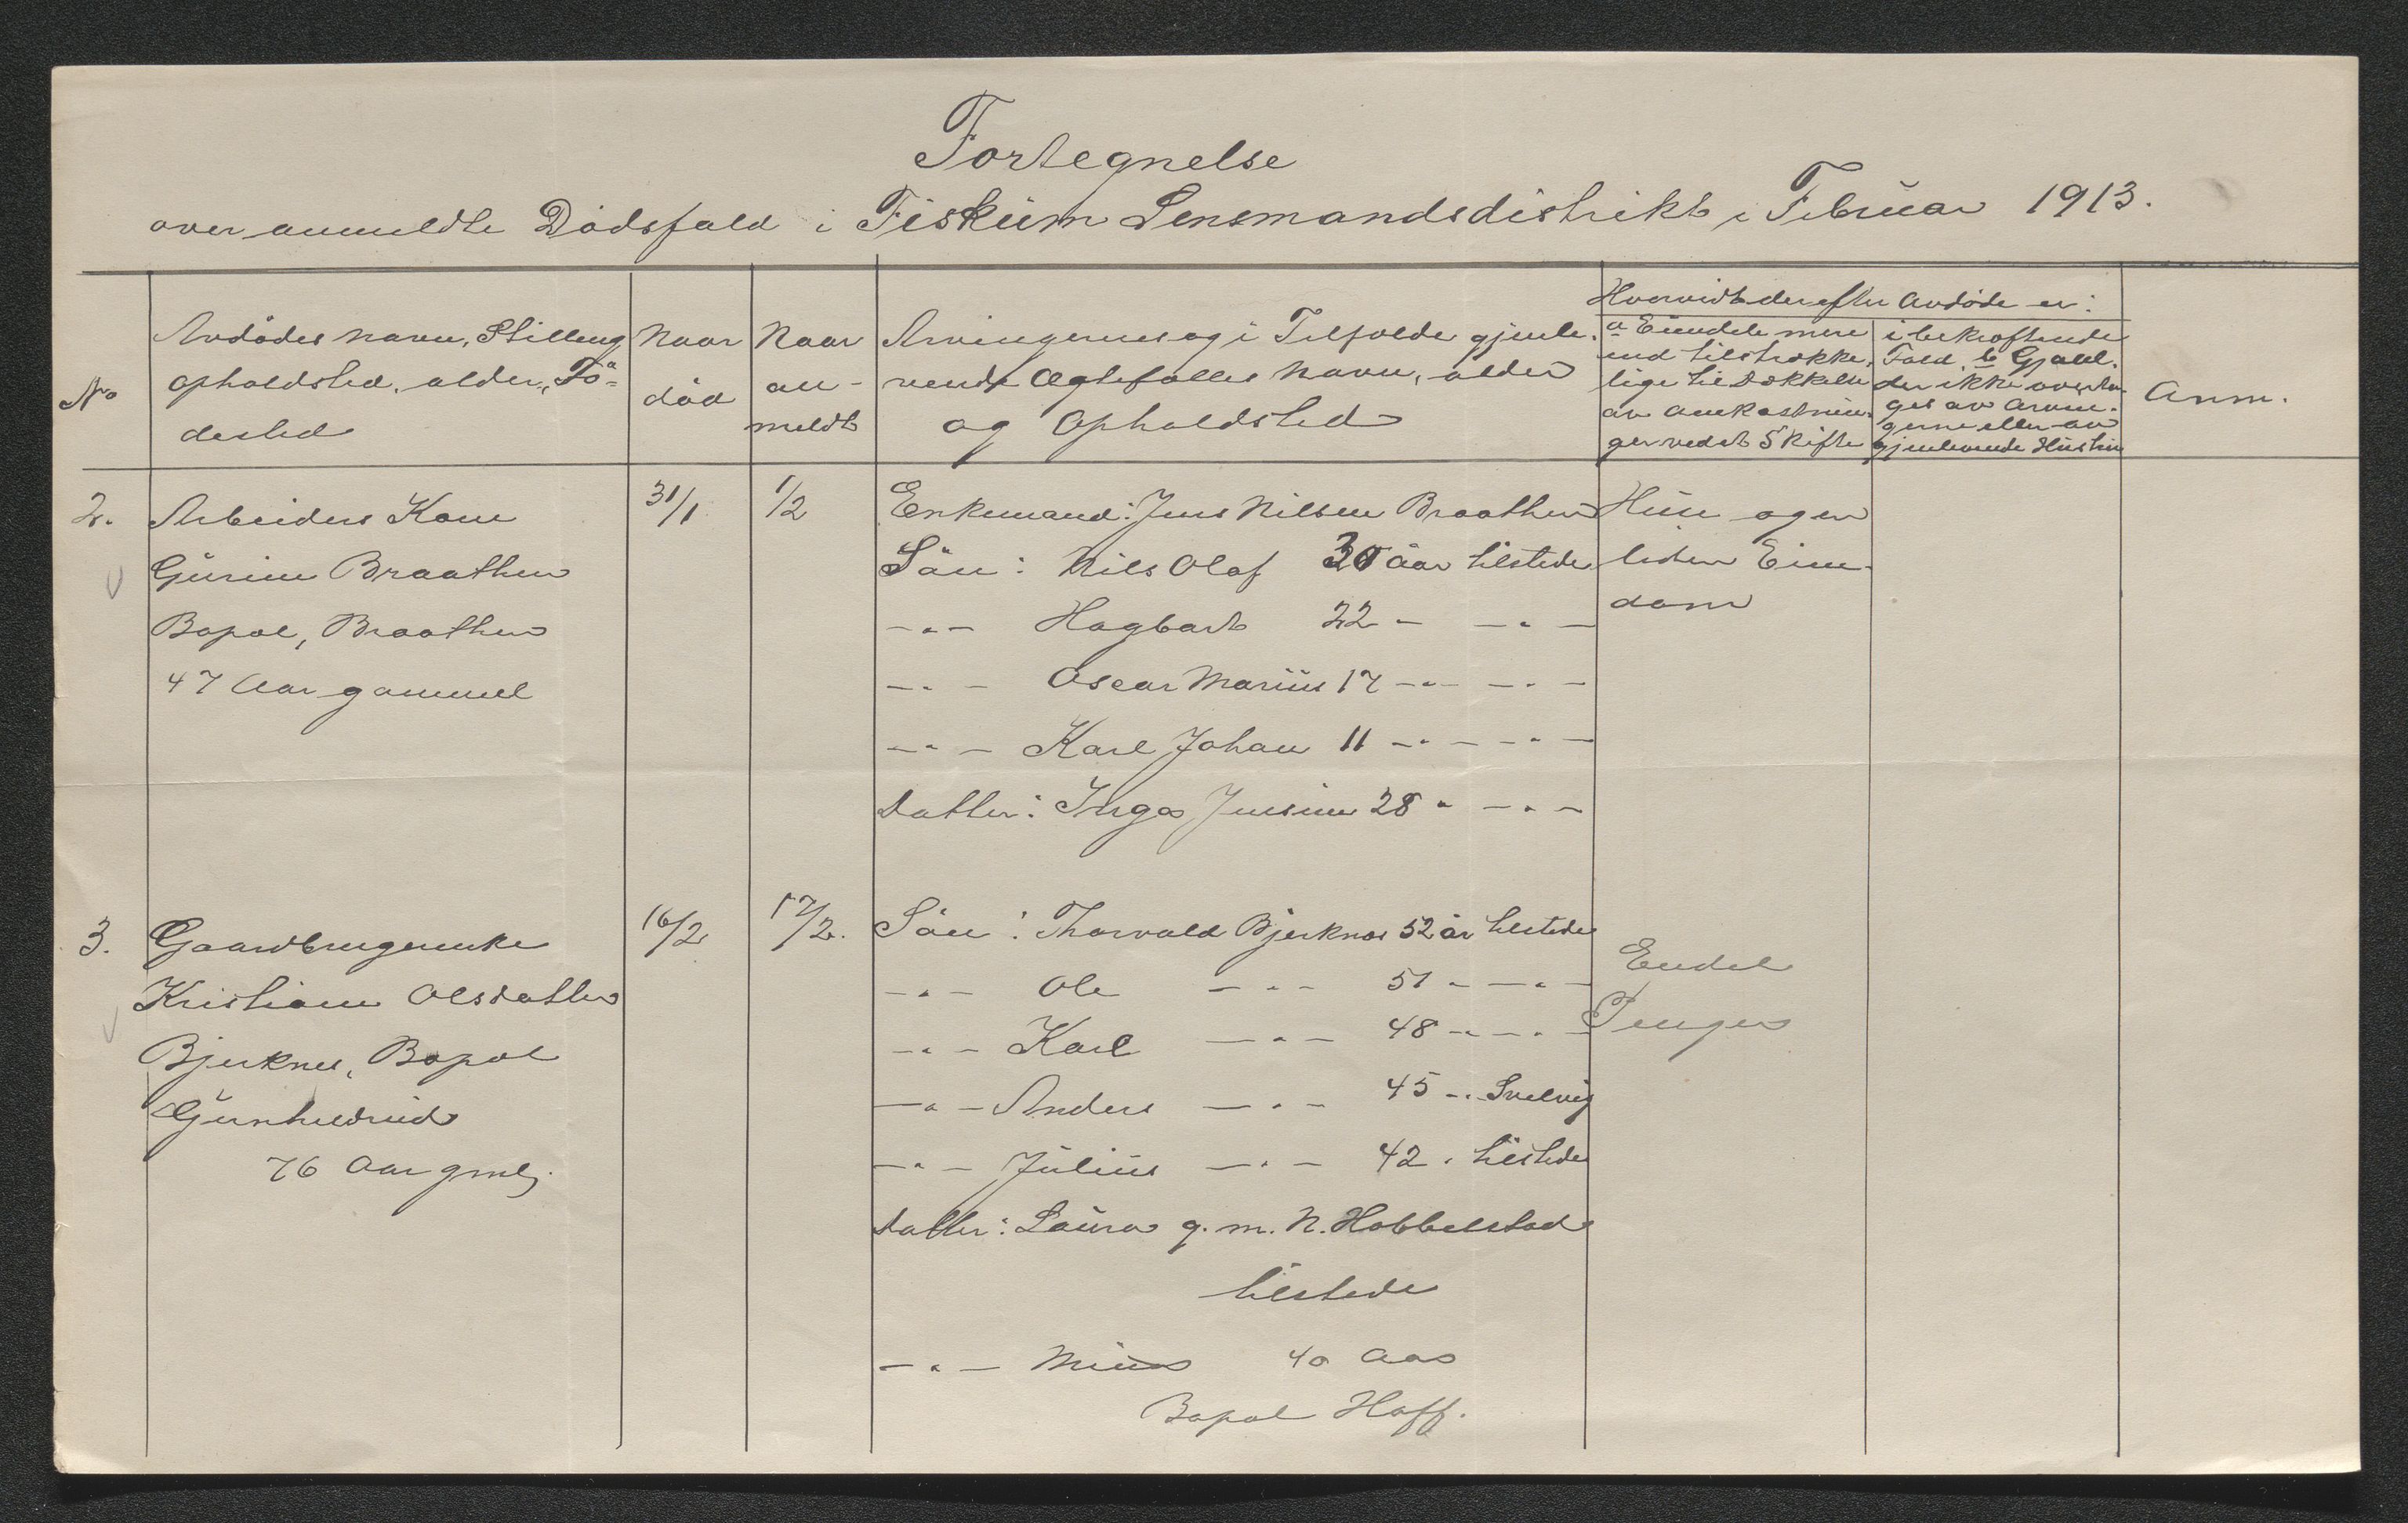 Fortegnelse
over anmeldte Dödsfald i Fiskum Lensmandsdistrikt i Februar 1913.
No
Avdödes navn, Stilling
opholdsted, alder, Fö-
dested
Naar
död
Naar
an-
meldt
Arvingernes og i Tilfælde gjenle-
vende Ægtefælles Navn, alder
og Opholdsted
Hvorvidt der efter avdöde er:
a Eiendele mere
end tilstrække-
lige til Dækkelse
av omkostnin-
ger ved et Skifte
i bekræftende
Fald, b Gjæld,
der ikke overta-
ges av arvin-
gerne eller av
gjenlevende Hustru
Anm.
2.
Arbeiders Kone
Gurine Braathen
Bopæl, Braathen
47 Aar gammel
31/1
1/2
Enkemand: Jens Nilsen Braathen
Sön: Nils Olaf 30 aar tilstede
-"- Hagbart 22 - -"-
-"- Oscar Marius 17 -"- -"-
-"- Karl Johan 11 -"- -"-
Datter: Inga Jensine 28 " -"-
Hus og en
liden Eien-
dom
3.
Gaardbrugerenke
Kristiane Olsdatter
Bjerknes, Bopæl
Gunhildrud
76 Aar gml.
16/2
17/2.
Sön: Thorvald Bjerknes 52 år tilstede
-"- Ole -"- 51 - -"-
-"- Karl -"- 48 -"- -"-
-"- Anders -"- 45 -"- Svelvig
-"- Julius -"- 42 " tilstede
Datter: Laura g. m. N. Hobbelstad
tilstede
-"- Mina 40 Aar
Bopæl Hoff.
Endel
Penger